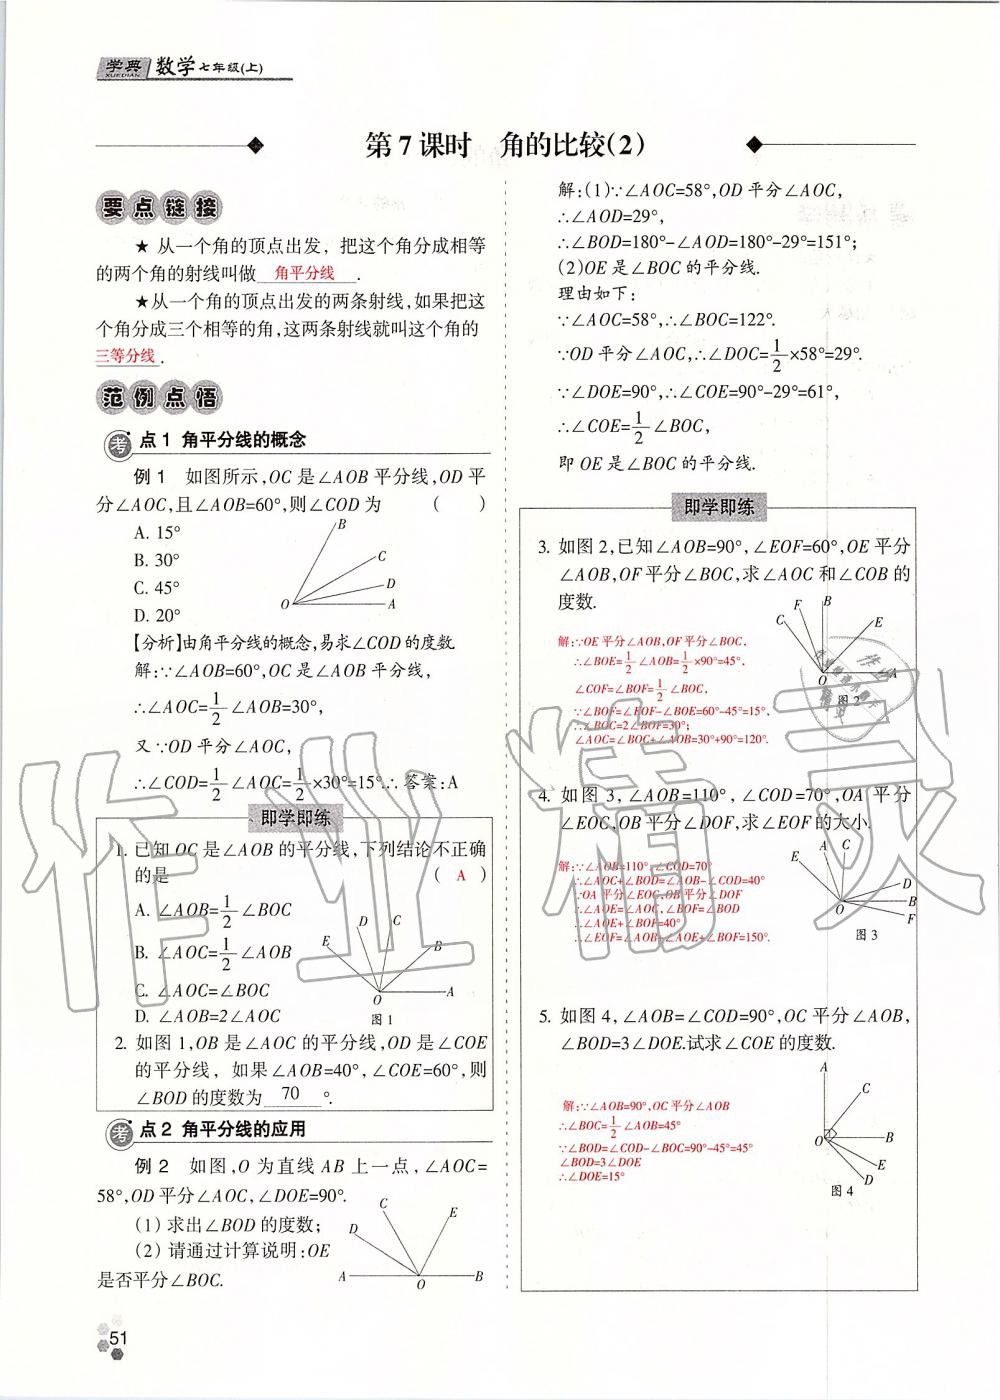 学典
XUEDIAN
数学七年级(上)
第7课时 角的比较(2)
要点链接
★ 从一个角的顶点出发，把这个角分成相等
的两个角的射线叫做 角平分线 .
★从一个角的顶点出发的两条射线,如果把这
个角分成三个相等的角,这两条射线就叫这个角的
三等分线.
范例点悟
考点1 角平分线的概念
例1 如图所示,OC是∠AOB平分线,OD平
分∠AOC,且∠AOB=60°,则∠COD为 ( )
A. 15°
B. 30°
C. 45°
D. 20°
B
C
D
O
A
【分析】由角平分线的概念,易求∠COD的度数.
解:∵∠AOB=60°,OC是∠AOB平分线,
∴∠AOC=1/2∠AOB=30°,
又∵OD平分∠AOC,
∴∠COD=1/2∠AOC=1/2×30°=15°.∴答案:A
即学即练
1. 已知OC是∠AOB的平分线,下列结论不正确
的是 ( A )
A. ∠AOB=1/2∠BOC
B. ∠AOC=1/2∠AOB
C. ∠AOC=∠BOC
D. ∠AOB=2∠AOC
D
C
E
B
O
A
图1
2. 如图1,OB是∠AOC的平分线,OD是∠COE
的平分线，如果∠AOB=40°,∠COE=60°,则
∠BOD的度数为 70 °.
考点2 角平分线的应用
例2 如图,O为直线AB上一点,∠AOC=
58°,OD平分∠AOC,∠DOE=90°.
(1) 求出∠BOD的度数;
(2) 请通过计算说明:OE
是否平分∠BOC.
C
E
D
A
O
B
51
解:(1)∵∠AOC=58°,OD平分∠AOC,
∴∠AOD=29°,
∴∠BOD=180°-∠AOD=180°-29°=151°;
(2)OE是∠BOC的平分线.
理由如下:
∵∠AOC=58°,∴∠BOC=122°.
∵OD平分∠AOC,∴∠DOC=1/2×58°=29°.
∵∠DOE=90°,∴∠COE=90°-29°=61°,
∴∠COE=1/2∠BOC,
即OE是∠BOC的平分线.
即学即练
3. 如图2,已知∠AOB=90°,∠EOF=60°,OE平分
∠AOB,OF平分∠BOC,求∠AOC和∠COB的
度数.
解:∵OE平分∠AOB,OF平分∠BOC,
∴∠BOE=1/2∠AOB=1/2×90°=45°.
∠COF=∠BOF=1/2∠BOC,
∵∠BOF=∠EOF-∠BOE=60°-45°=15°.
∴∠BOC=2∠BOF=30°;
∠AOC=∠BOC+∠AOB=30°+90°=120°.
F
B
C
E
O
A
图2
4. 如图3,∠AOB=110°,∠COD=70°,OA平分
∠EOC,OB平分∠DOF,求∠EOF的大小.
解:∵∠AOB=110°,∠COD=70°
∴∠AOC+∠BOD=∠AOB-∠COD=40°
∵OA平分∠EOC,OB平分∠DOF
∴∠AOE=∠AOC,∠BOF=∠BOD
∴∠AOE+∠BOF=40°
∴∠EOF=∠AOB+∠AOE+∠BOF=150°.
A
C
E
D
O
B
F
图3
5. 如图4,∠AOB=∠COD=90°,OC平分∠AOB,
∠BOD=3∠DOE.试求∠COE的度数.
解:∵∠AOB=90°,OC平分∠AOB
∴∠BOC=1/2∠AOB=45°
∵∠BOD=∠COD-∠BOC=90°-45°=45°
∠BOD=3∠DOE
∴∠DOE=15°
A
C
O
B
E
D
图4
作业精灵